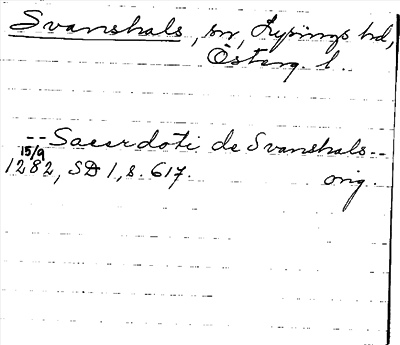 Svanshals, sn, Lysings hd,
Österg. l.
-- Sacerdoti de Svanshals --
15/9
1282, SD 1, s. 617. orig.